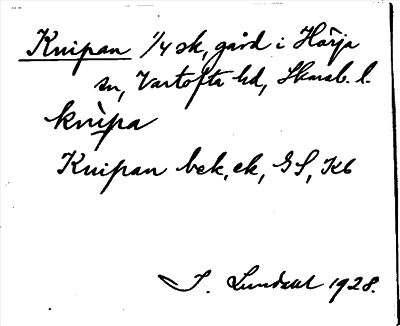 Knipan 1/4 sk, gård i Hörja
sn, Vartofta hd, Skarab. l.
knìpa
Knipan bek. ek, GS, Kb
I. Lundahl 1928.